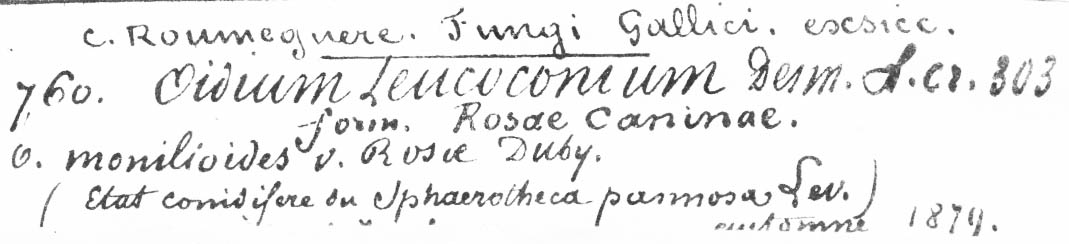 C. Roumeguere. Fungi Gallici. exsicc.
760. Oidium Leucoconium Desm. S. cr. 303
form. Rosae Caninae.
O. monilioides v. Rosæ Duby.
( Etat conidifere du Sphaerotheca pannosa Lev. )
automne 1879.